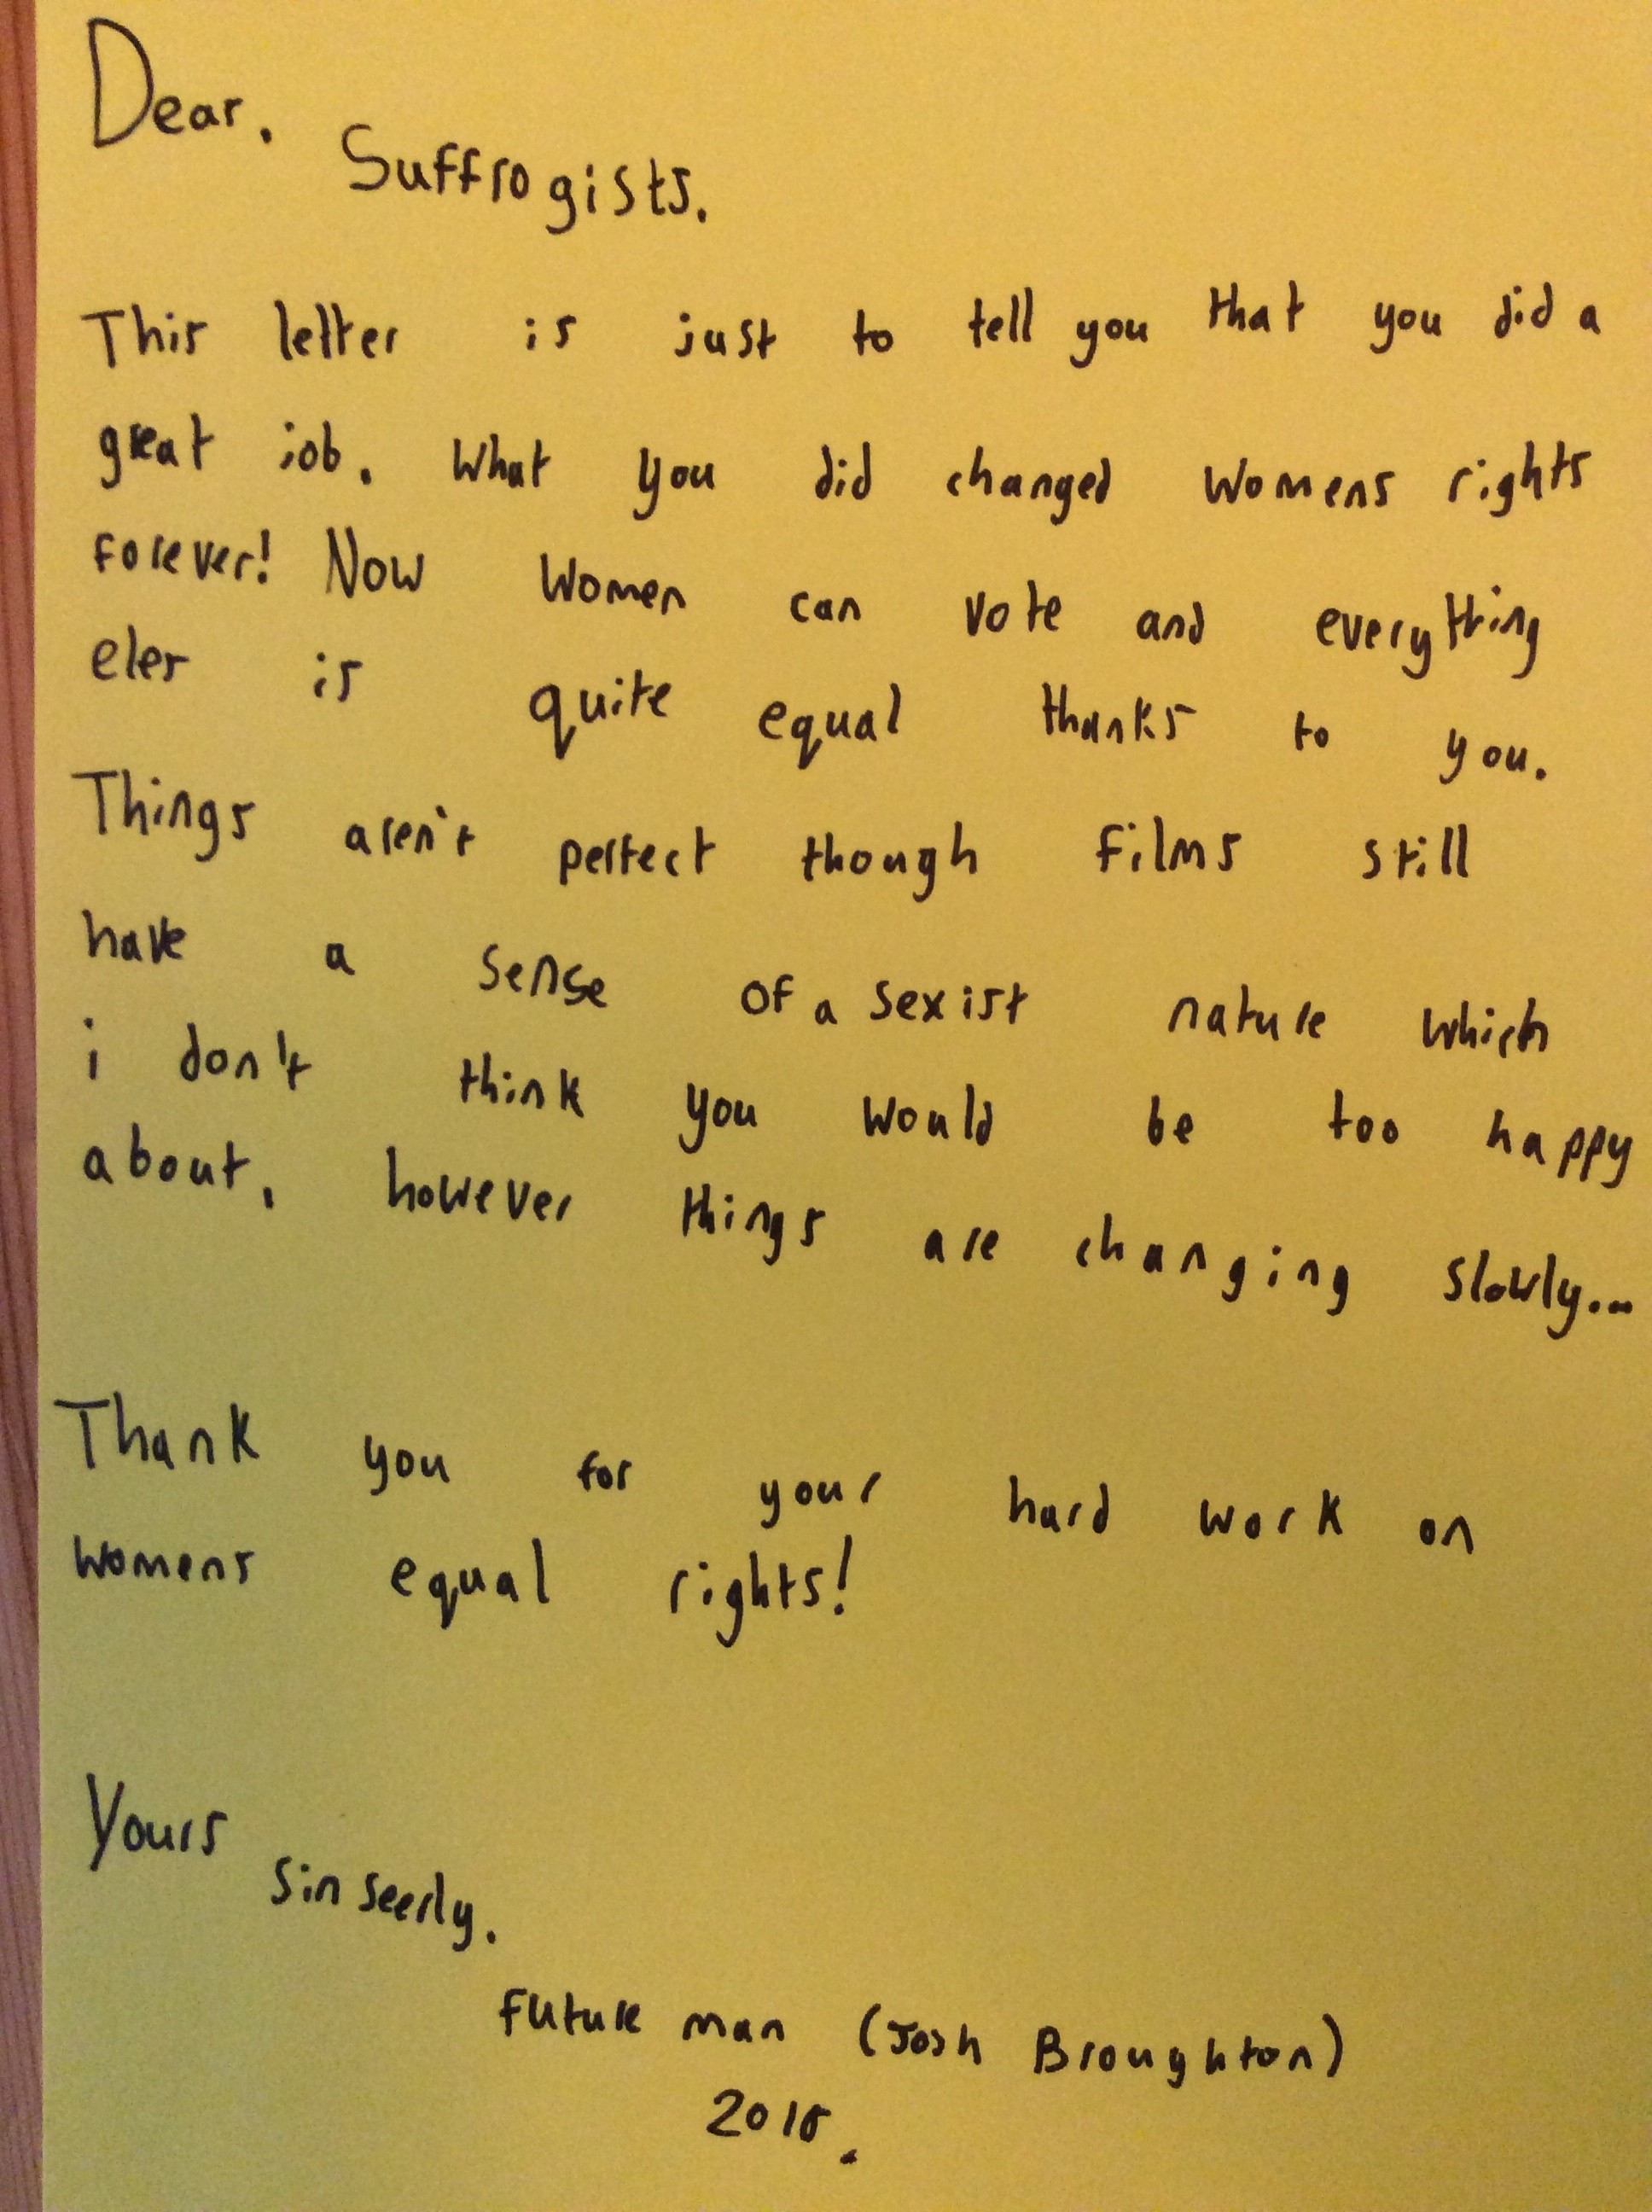 Dear.
Suffrogists.
This letter is just to tell you that you did a
great job. What you did changed womens rights
forever! Now women can vote and everything
eles is quite equal thanks to you.
Things aren't perfect though films still
have a sense of a sexist nature which
i don't think you would be too happy
about. however things are changing slowly...
Thank you for your hard work on
womens equal rights!
Yours
sinseerly.
future man (Josh Broughton)